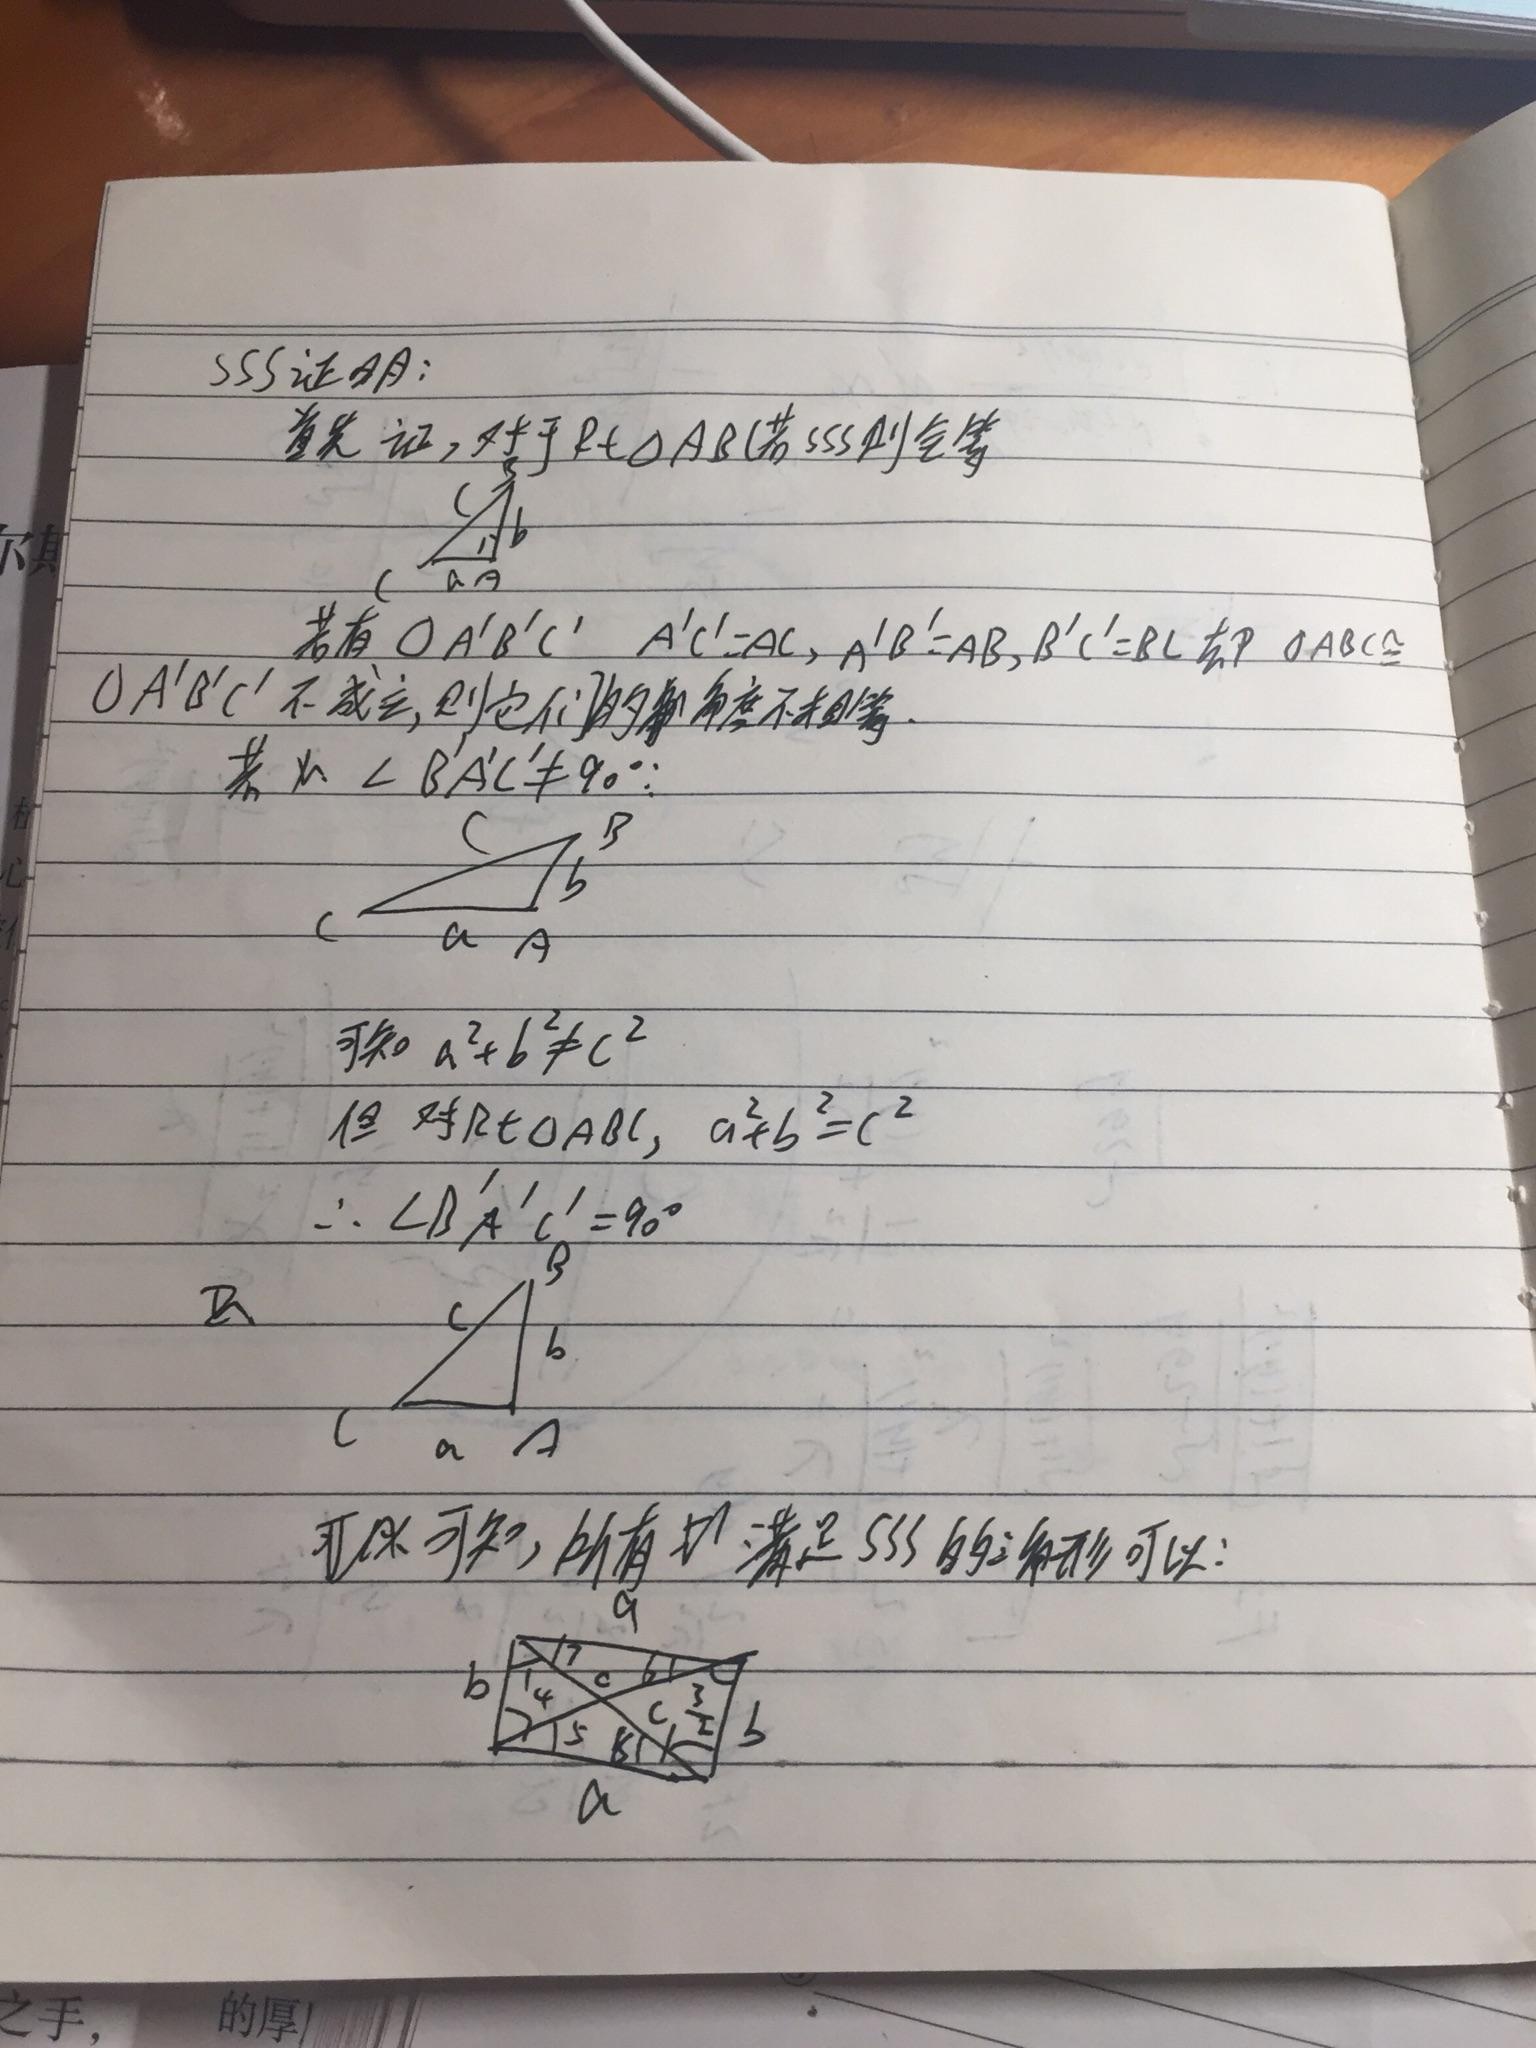 尔斯
SSS证明:
首先证,对于Rt△ABC若SSS则全等
B
c
b
C
a A
若有△A'B'C' A'C'=AC, A'B'=AB, B'C'=BC 却△ABC≌
△A'B'C'不成立,则它们的角度不相等.
若 ∠B'A'C'≠90°:
c
B
b
C
a
A
可知 a²+b²≠c²
但对Rt△ABC, a²+b²=c²
∴ ∠B'A'C'=90°
B
c
b
C
a
A
可知,所有 满足SSS的三角形可以:
a
7
6
b
1
c
4
3
c
2
b
5
8
a
之手,
的厚